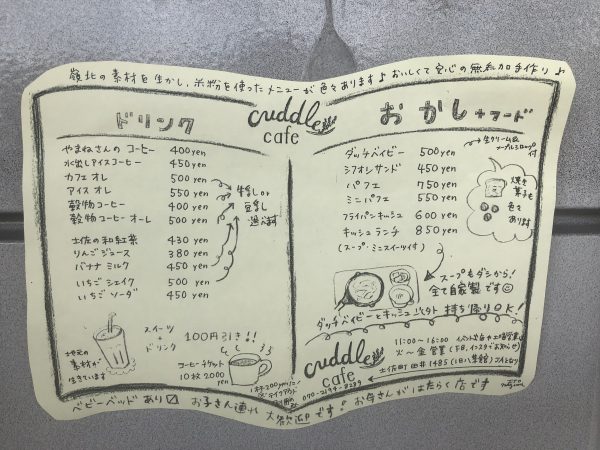 嶺北の素材を生かし、米粉を使ったメニューが色々あります♪おいしくて安心の無添加手作り♪
ドリンク
cuddle cafe
おかし+フード
やまねさんのコーヒー 400yen
水出しアイスコーヒー 450yen
カフェオレ 500yen
アイスオレ 550yen
穀物コーヒー 400yen
穀物コーヒーオーレ 500yen
牛乳or
豆乳
選べます
土佐の和紅茶 430yen
りんごジュース 380yen
バナナミルク 450yen
いちごシェイク 500yen
いちごソーダ 450yen
スイーツ
+
ドリンク
100円引き!!
地元の
素材が
生きています
コーヒーチケット
10枚2000yen
ダッチベイビー 500yen
生クリーム&
メープルシロップ付
シフォンサンド 450yen
パフェ 750yen
ミニパフェ 550yen
フライパンキッシュ 600yen
キッシュランチ 850yen
(スープ・ミニスイーツ付)
焼き
菓子も
色々
あります
スープもダシから!
全て自家製です☺
ダッチベイビーとキッシュ
持ち帰りOK!
cuddle cafe
11:00~16:00
火~金営業
土佐町田井1485
ベビーベッドあり☑ お子さん連れ大歓迎です! お母さんがはたらく店です